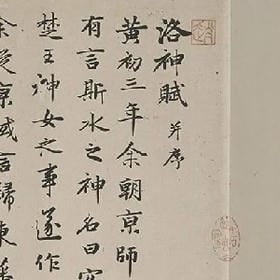 洛神賦 并序
黃初三年余朝京師
有言斯水之神名曰宓
楚王神女之事遂作
余從京域言歸東藩